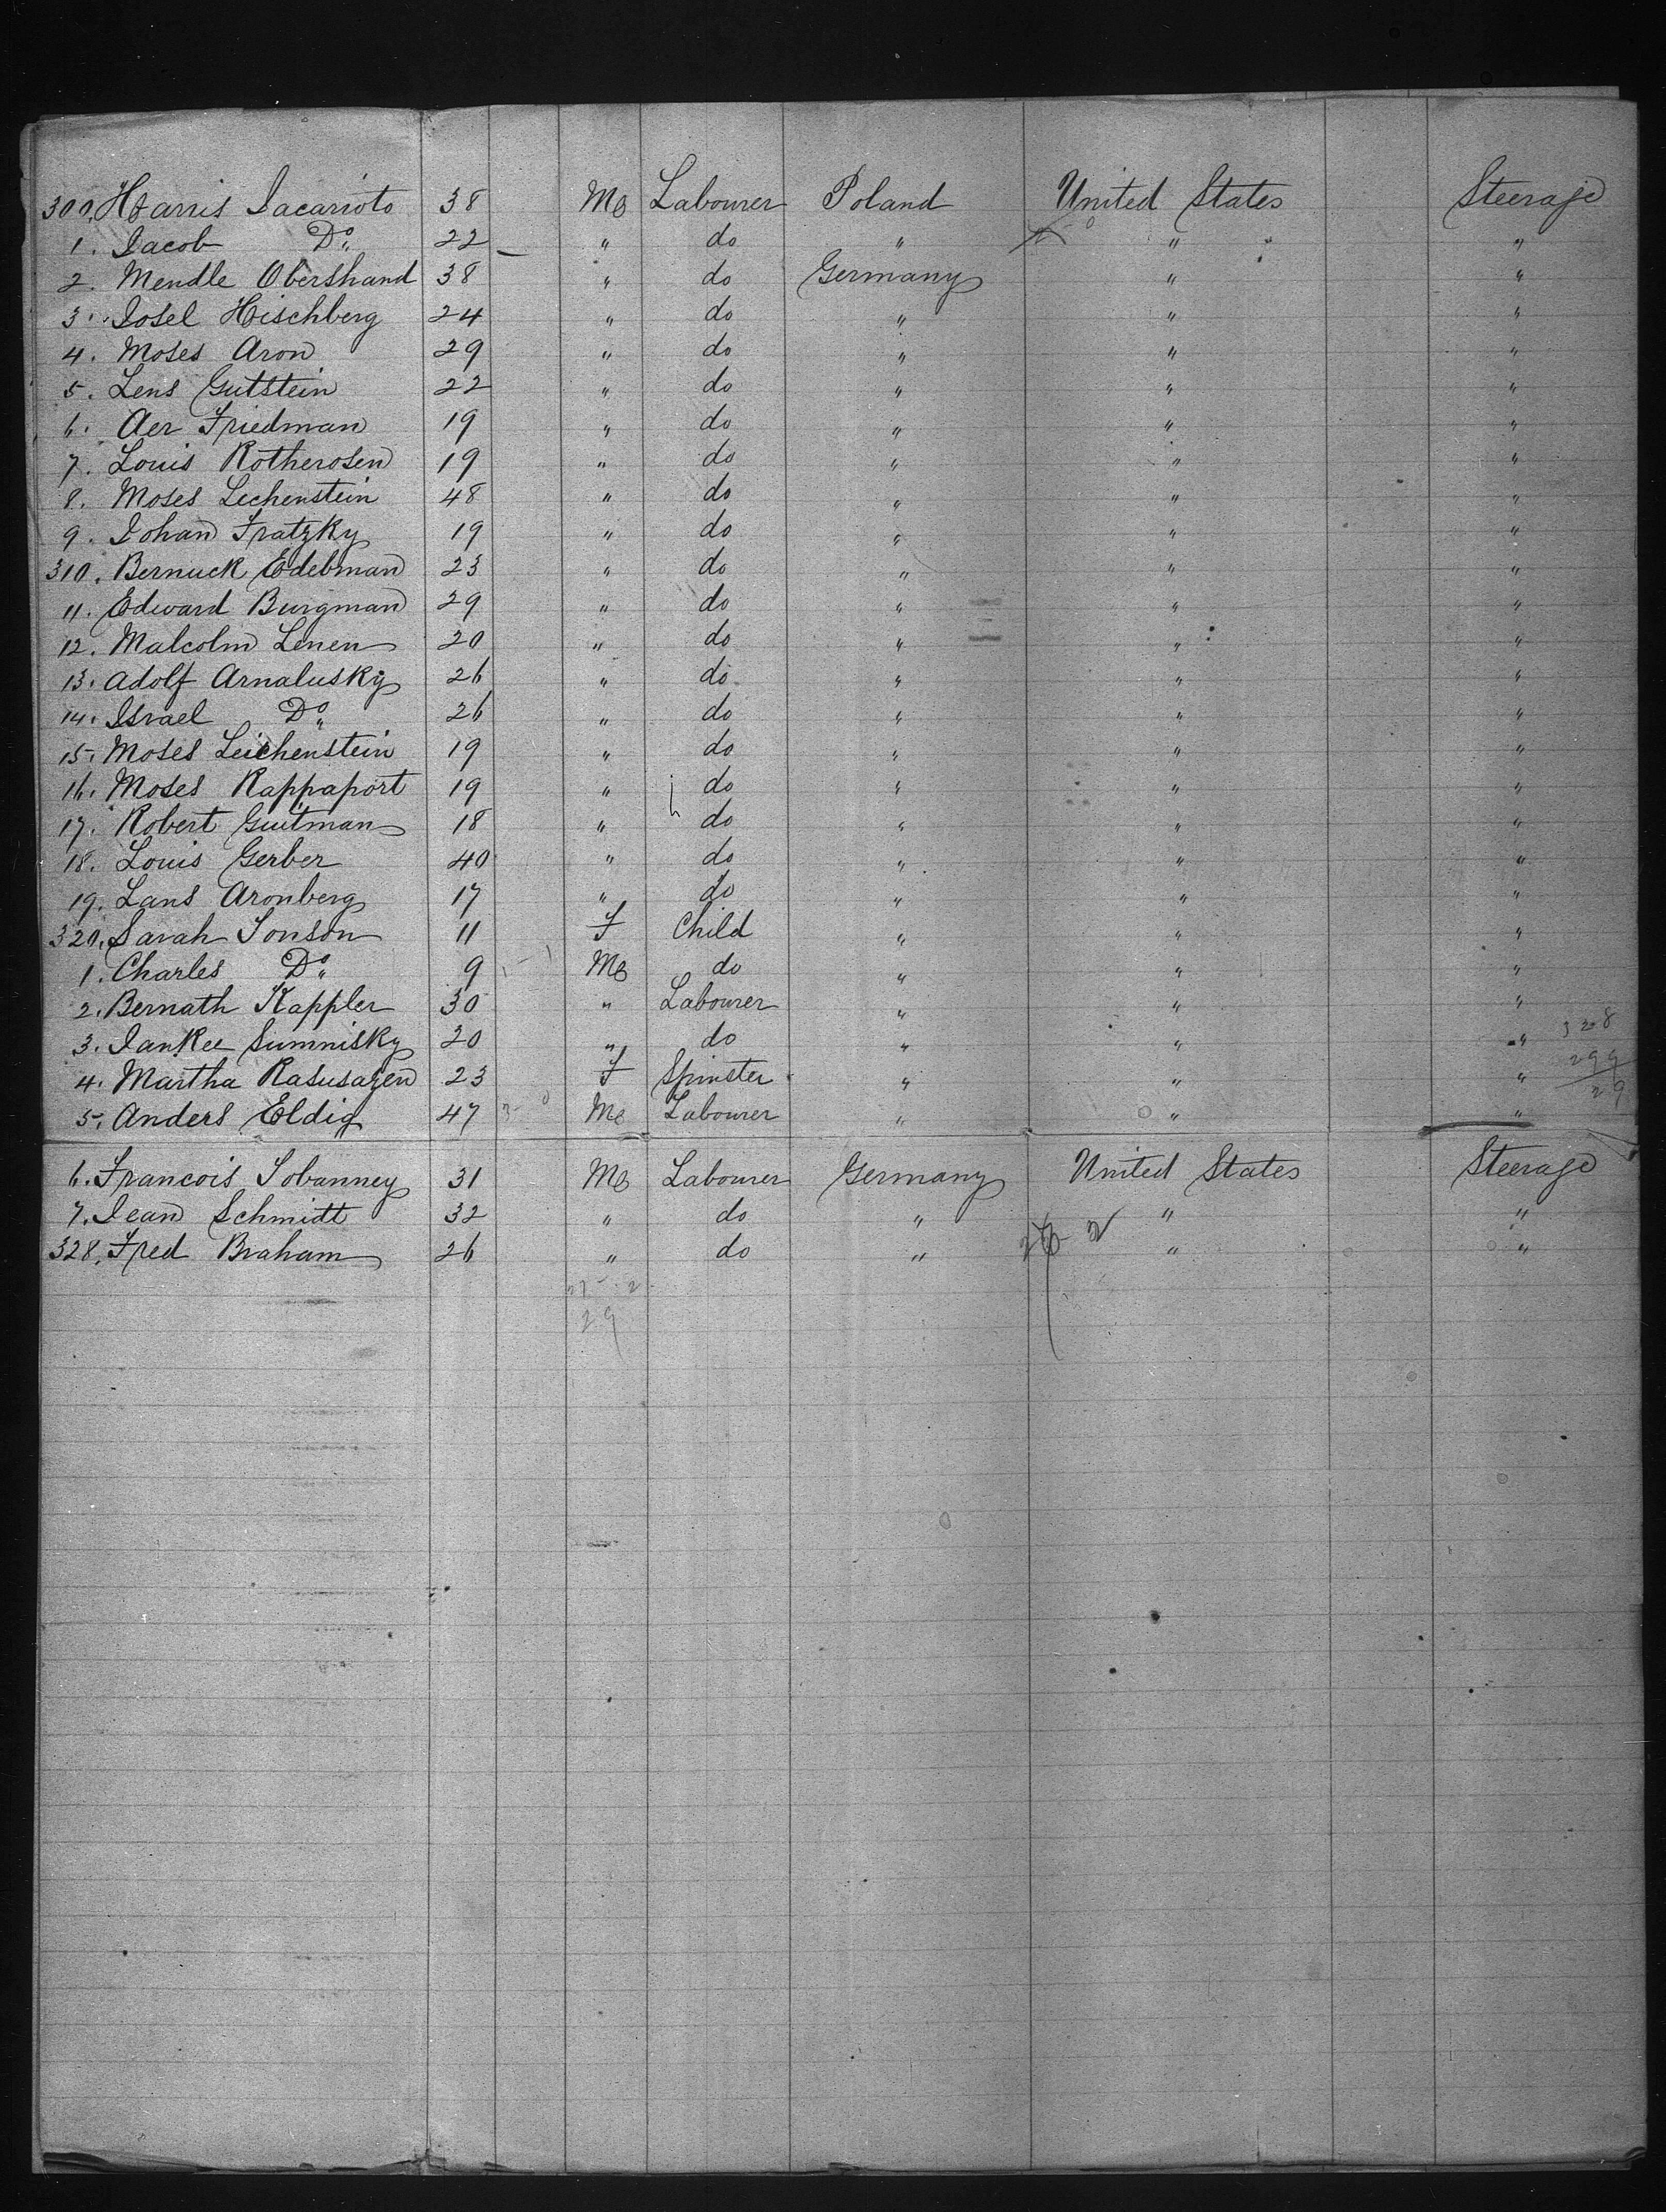 300. Harris Jacarioto 38 M Labourer Poland United States Steerage
1. Jacob Do 22 " do " " "
2. Mendle Obershand 38 " do Germany " "
3. Josel Hischberg 24 " do " " "
4. Moses Aron 29 " do " " "
5. Lens Gutstein 22 " do " " "
6. Aer Friedman 19 " do " " "
7. Louis Rotherosen 19 " do " " "
8. Moses Lechenstein 48 " do " " "
9. Johan Fratzky 19 " do " " "
310. Bernuck Edebman 23 " do " " "
11. Edward Burgman 29 " do " " "
12. Malcolm Lenen 20 " do " " "
13. Adolf Arnalusky 26 " do " " "
14. Israel Do 26 " do " " "
15. Moses Leichenstein 19 " do " " "
16. Moses Rappaport 19 " do " " "
17. Robert Guitman 18 " do " " "
18. Louis Gerber 40 " do " " "
19. Lans Aronberg 17 " do " " "
320. Sarah Jonson 11 F Child " " "
1. Charles Do 9 M do " " "
2. Bernath Kappler 30 " Labourer " " "
3. Jankee Sumnisky 20 " do " " " 328
4. Martha Rasusazen 23 F Spinster " " " 299
29
5. Anders Eldig 47 M Labourer " " "
6. Francois Sobanney 31 M Labourer Germany United States Steerage
7. Jean Schmidt 32 " do " " "
328. Fred Braham 26 " do " " "
27 - 2
29